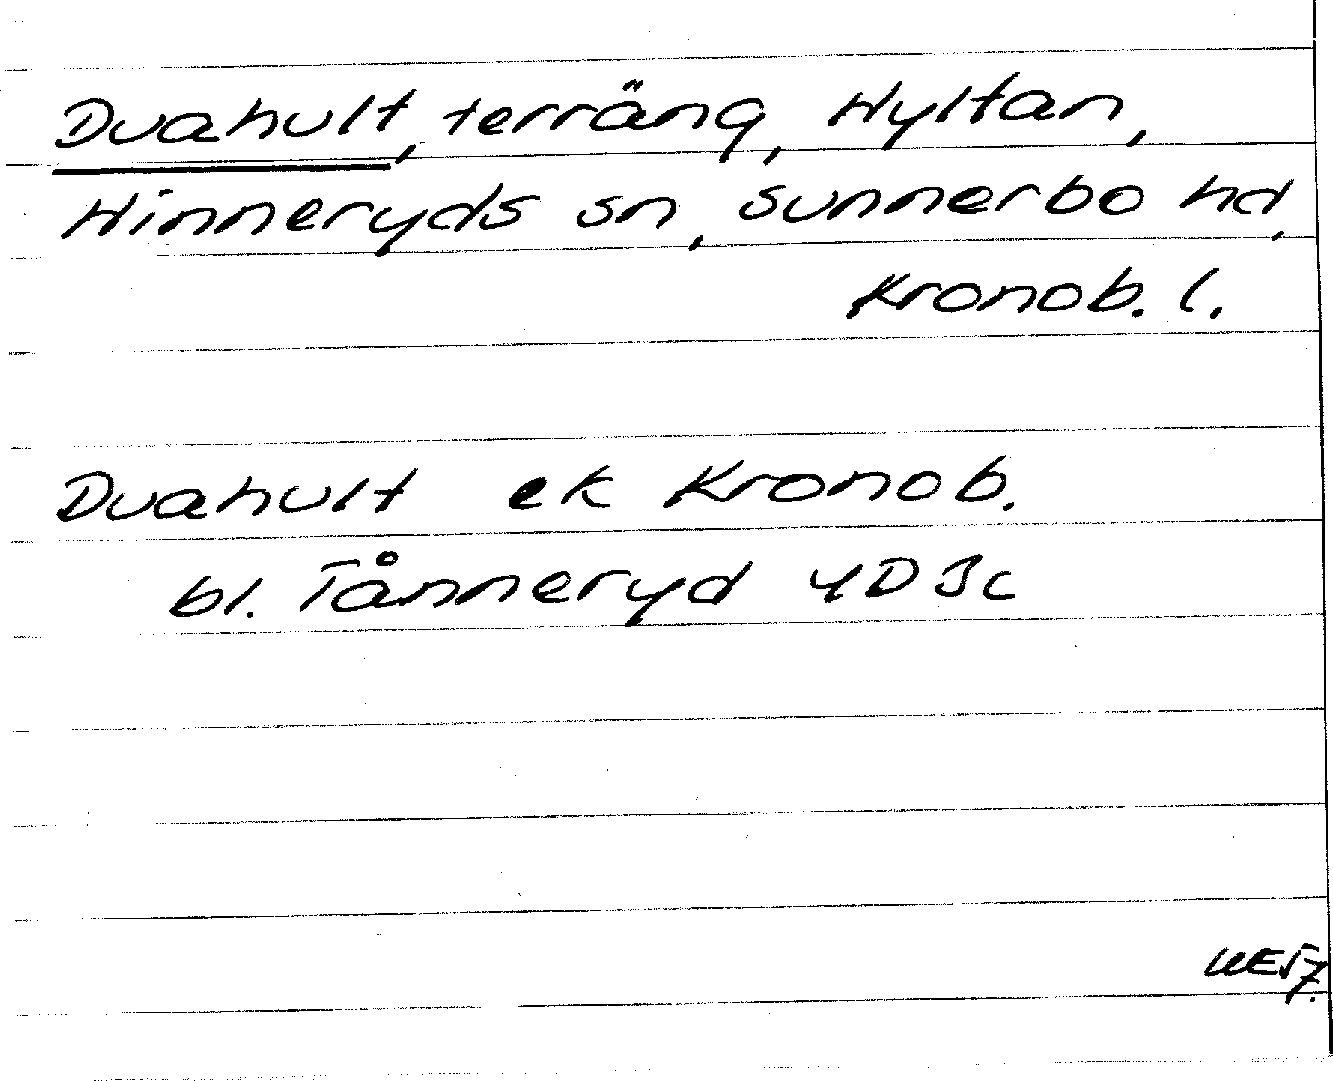 Duahult, terräng, Hyltan,
Hinneryds sn, Sunnerbo hd,
Kronob. l.
Duahult ek Kronob.
bl. Tånneryd 4D3c